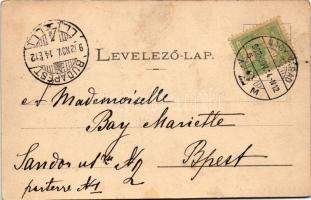 LEVELEZŐ-LAP.
BUDAPEST
912 NOV. 14
A Mademoiselle
Bay Mariette
Sandor utc. N2
Bpest
parterre N1